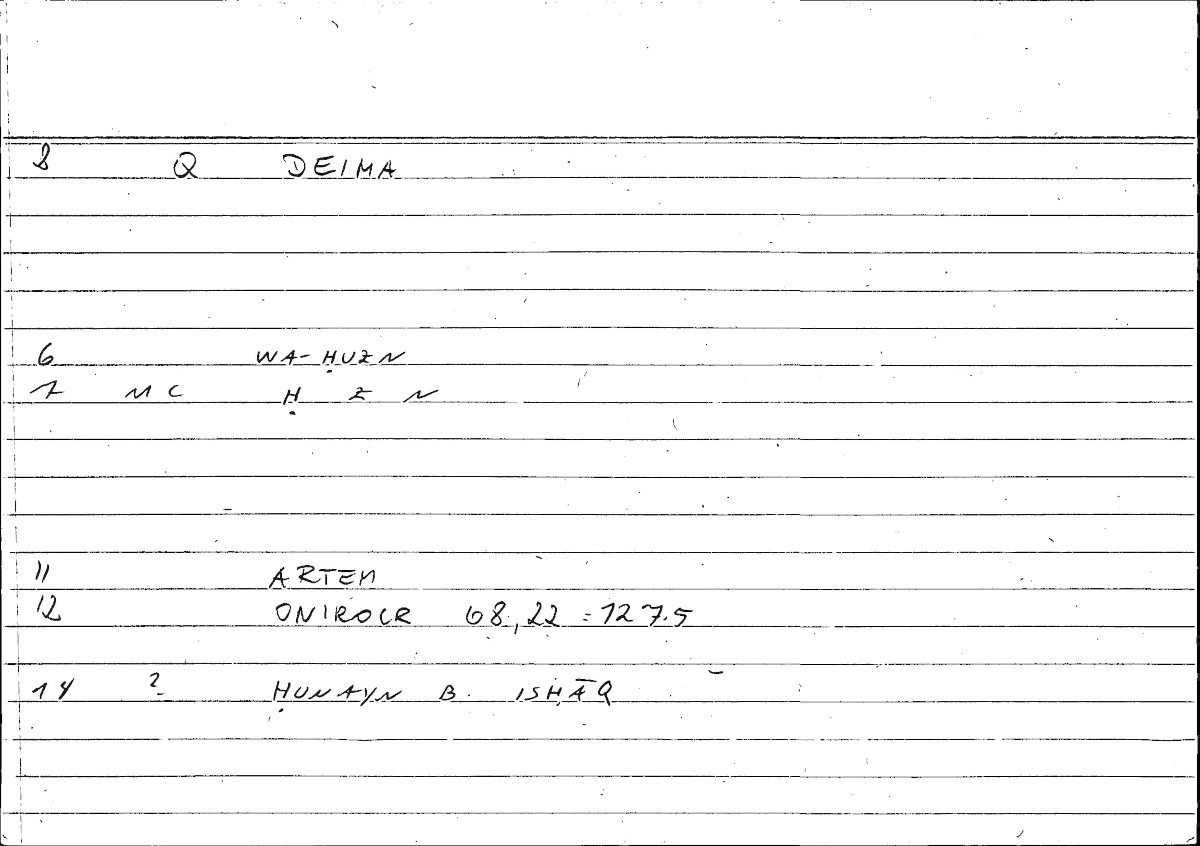 8 Q DEIMA
6 WA-ḤUZN
7 MC Ḥ Z N
11 ARTEM
12 ONIROCR 68,22 = 127.5
14 ? ḤUNAYN B. ISḤĀQ